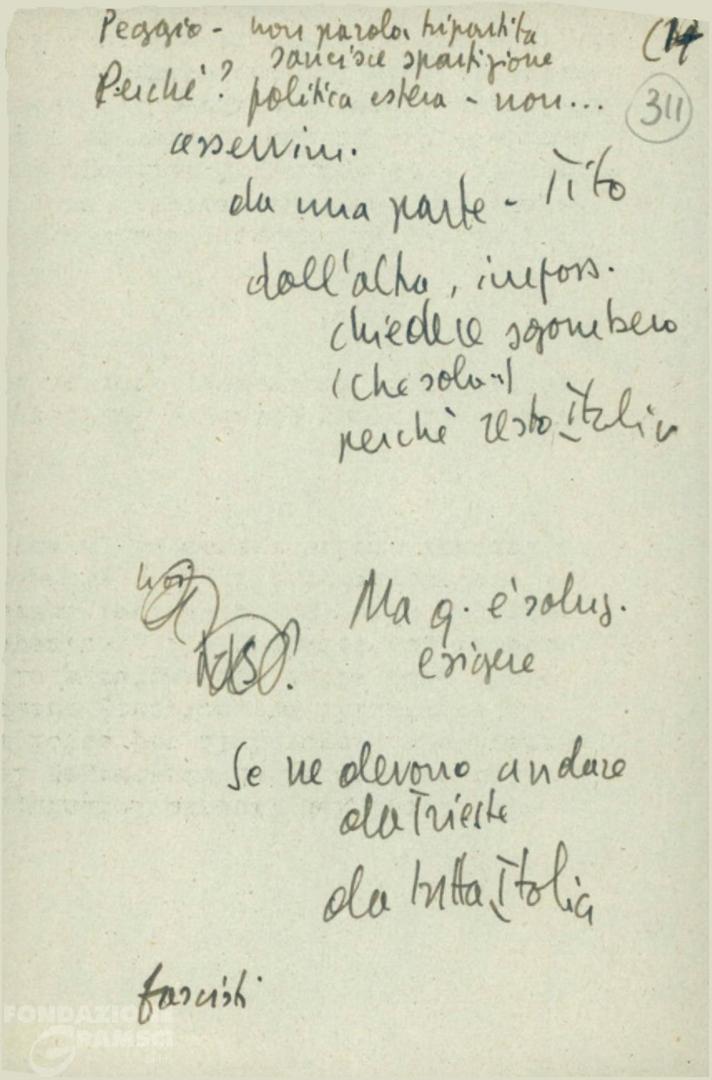 Peggio - non parola tripartita
sancisce spartizione
Perché? politica estera - non...
asservim.
311
da una parte - Tito
dall'altra, imposs.
chiedere sgombero
(che solu..)
perché resto Italia
non
Ma q. è soluz.
esigere
Se ne devono andare
da Trieste
da tutta Italia
fascisti
FONDAZIONE
GRAMSCI